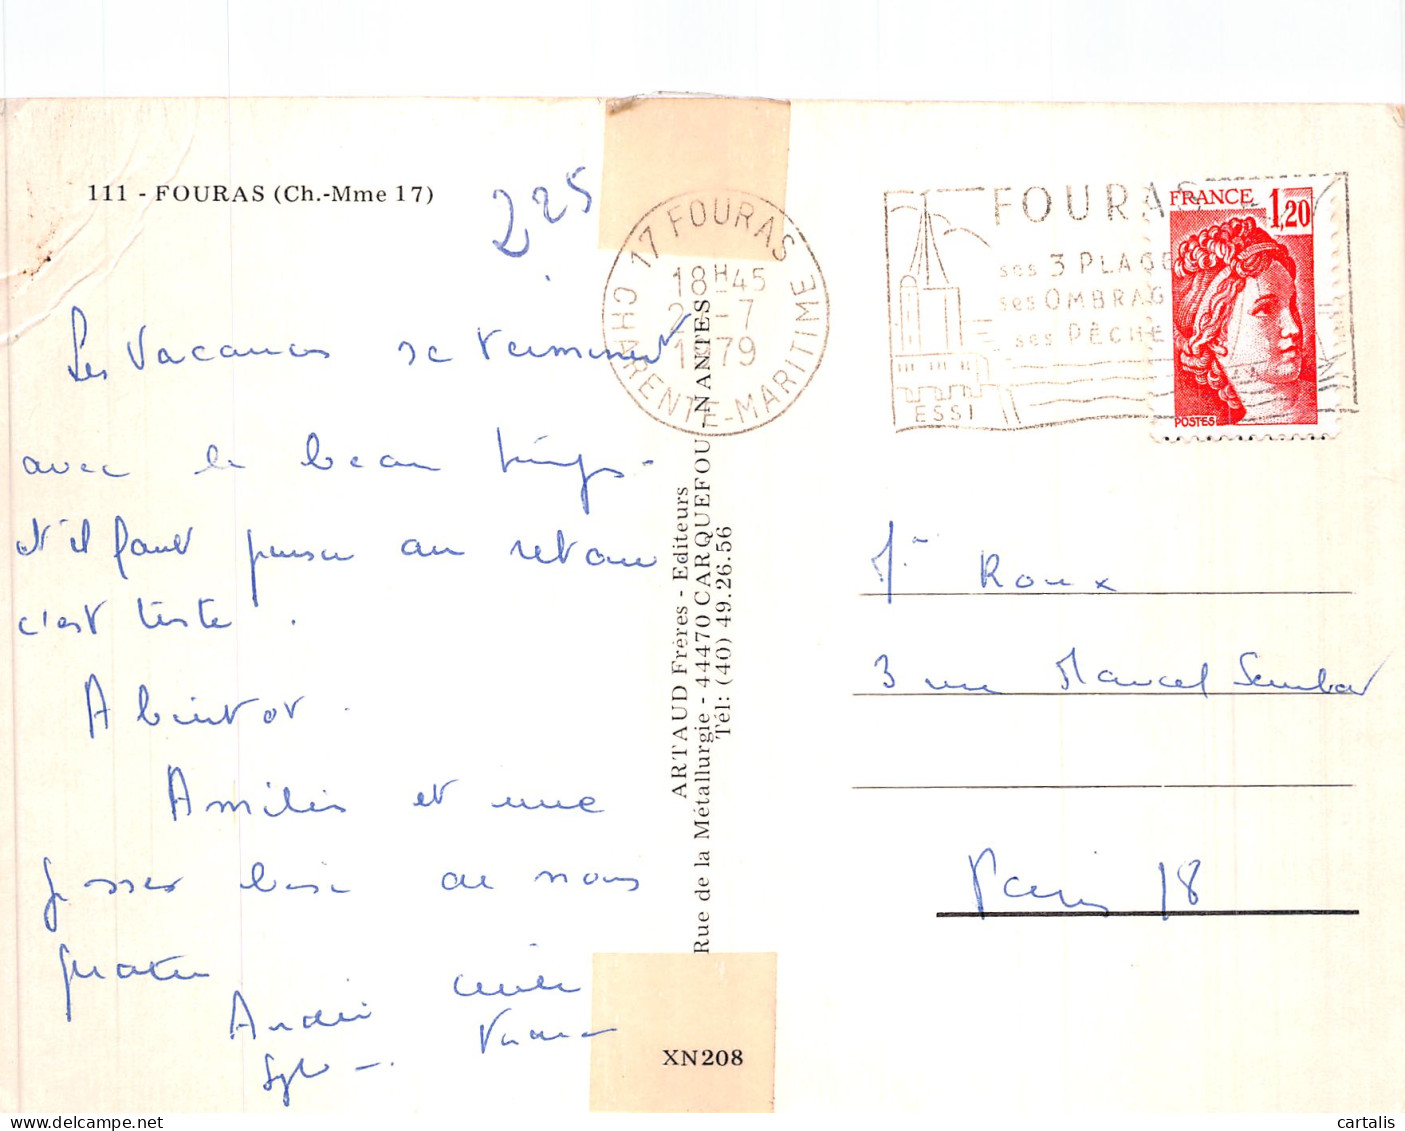 111 - FOURAS (Ch.-Mme 17)
225
Les Vacances se terminent
avec le beau temps.
et il faut penser au retour
c'est triste.
A bientot.
Amitiés et une
grosse bise de nous
quatre
André
Sylv
17 FOURAS
18H45
-7
1979
CHARENTE-MARITIME
ARTAUD Frères - Editeurs
Rue de la Métallurgie - 44470 CARQUEFOU - NANTES
Tél: (40) 49.26.56
XN208
FOURAS
ses 3 PLAGE
ses OMBRAG
ses PÊCHE
ESSI
FRANCE 1,20
POSTES
Roux
3 rue Marcel Sembat
Paris 18
cartalis
www.delcampe.net